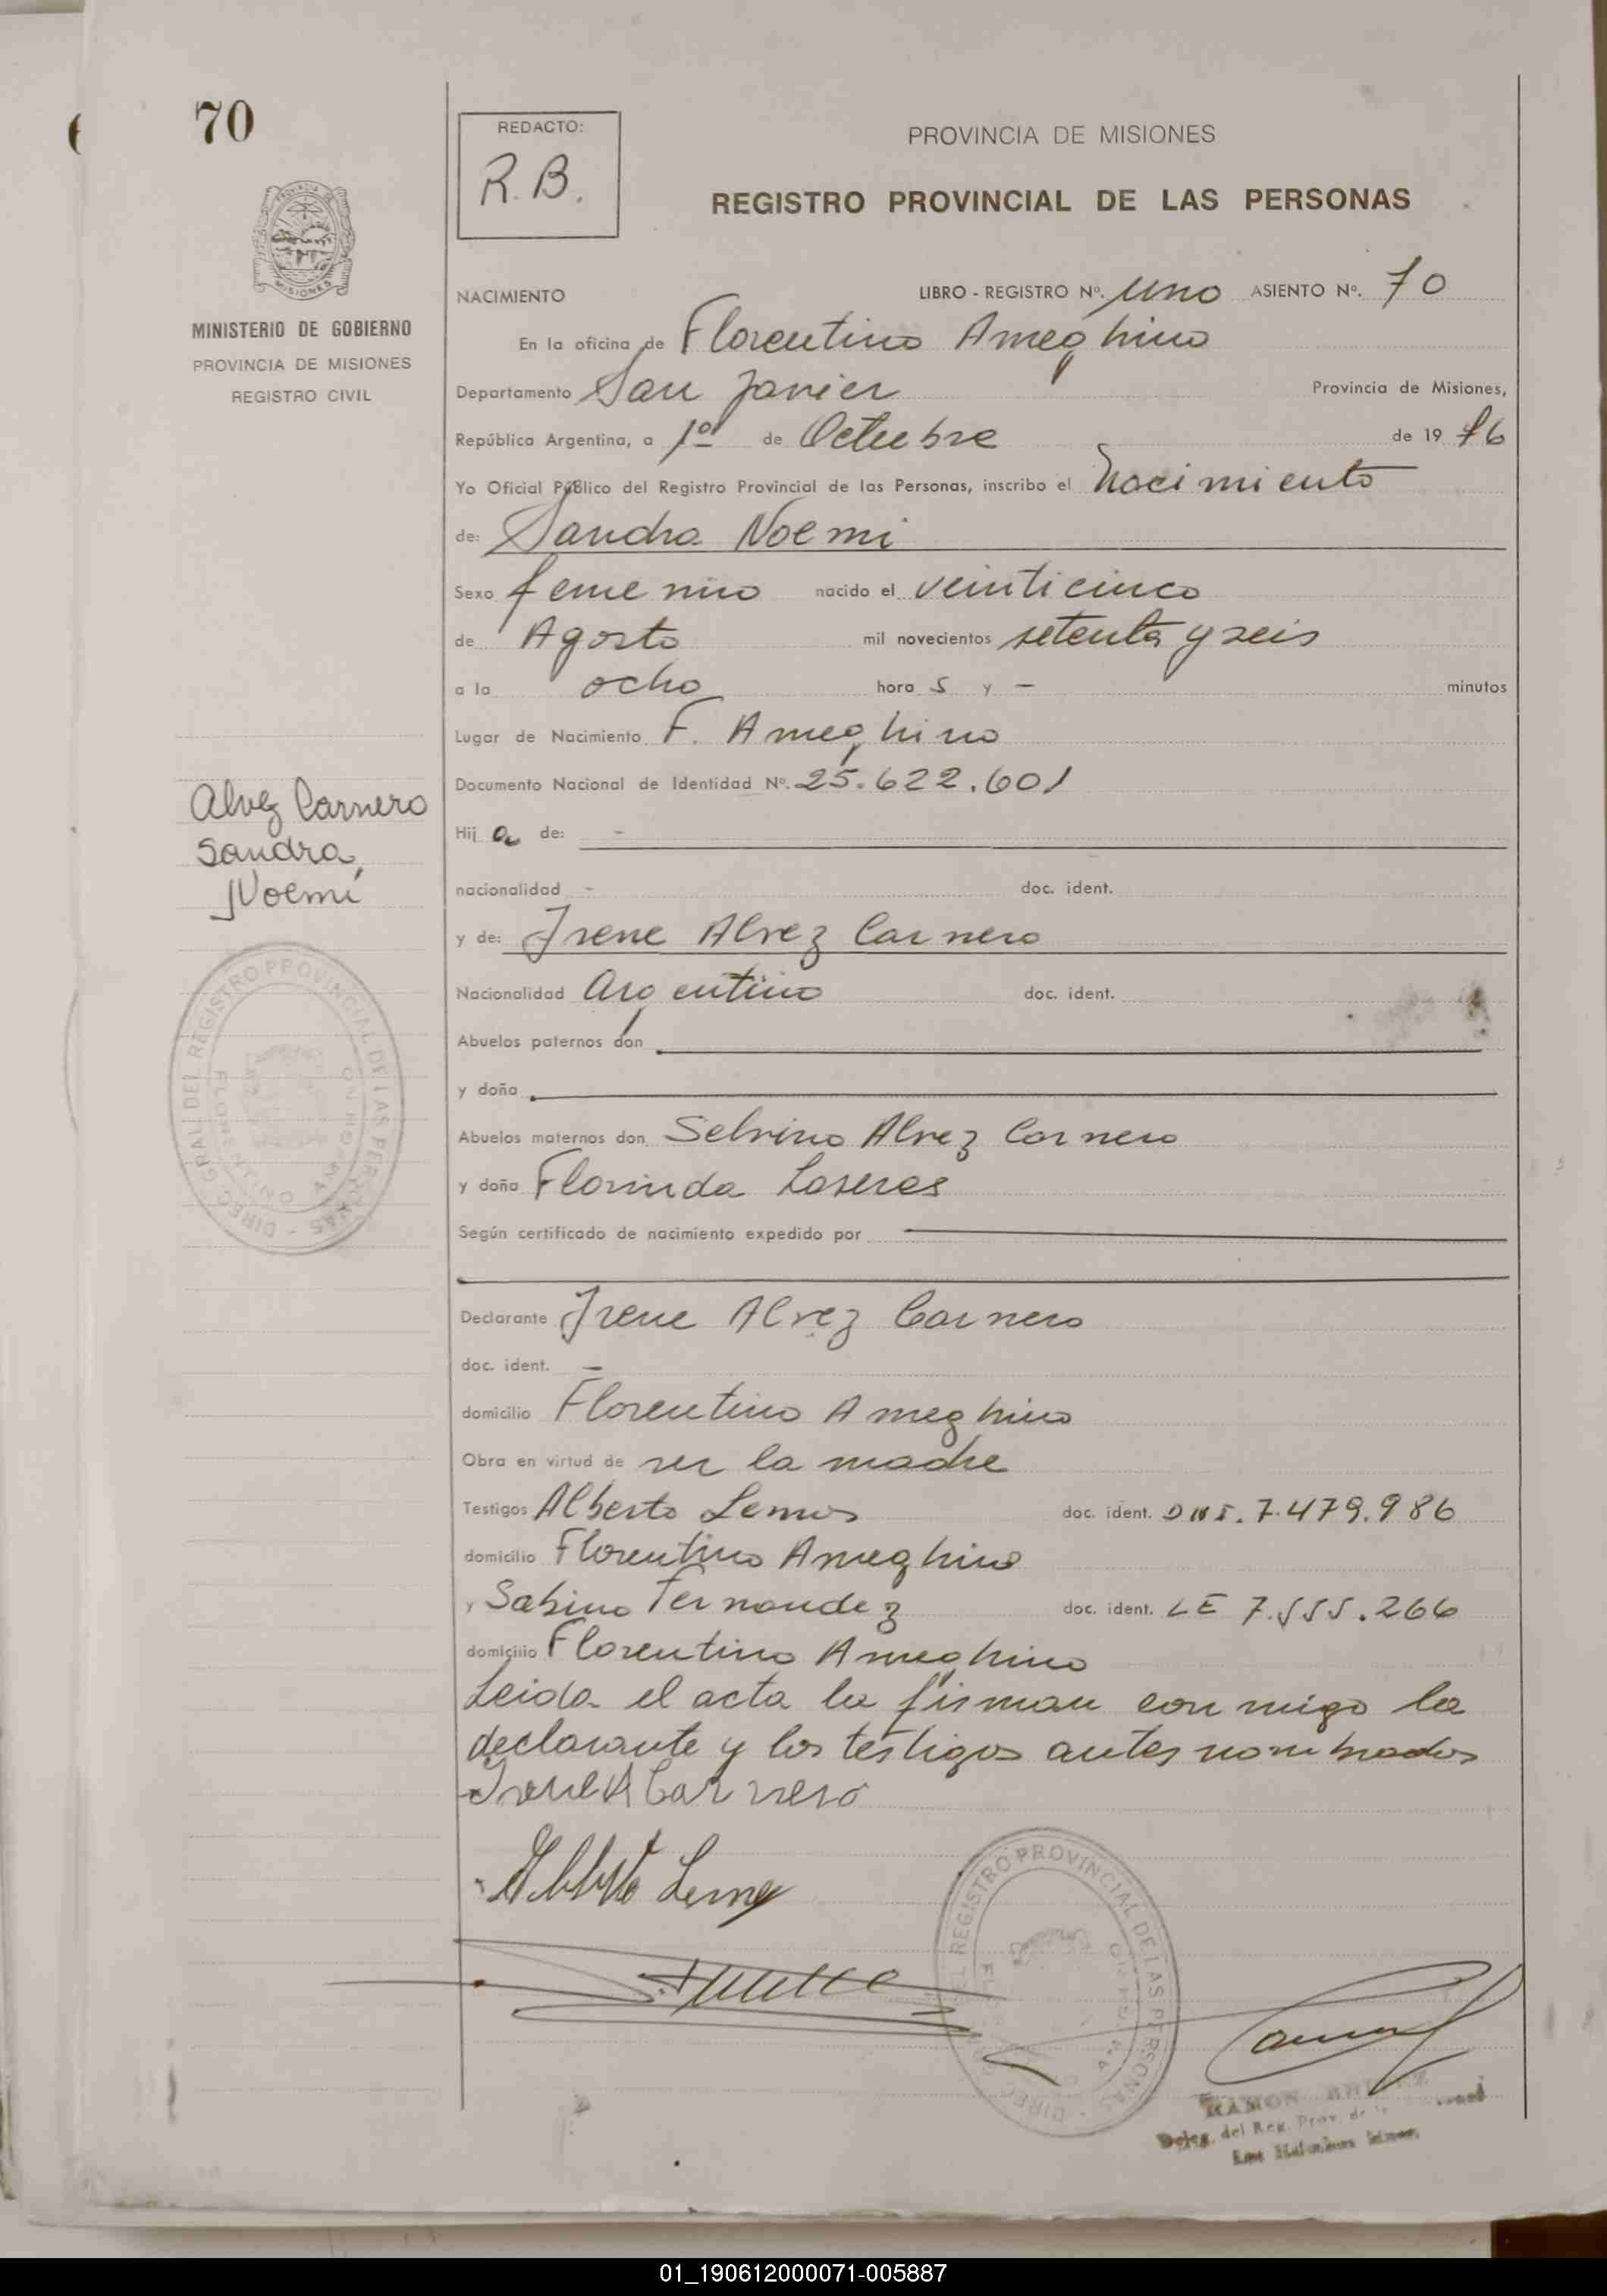 70
MINISTERIO DE GOBIERNO
PROVINCIA DE MISIONES
REGISTRO CIVIL
Alvez Carnero
Sandra
Noemí
REDACTO:
R.B.
PROVINCIA DE MISIONES
REGISTRO PROVINCIAL DE LAS PERSONAS
NACIMIENTO LIBRO - REGISTRO Nº. uno ASIENTO Nº. 70
En la oficina de Florentino Ameghino
Departamento San Javier Provincia de Misiones,
República Argentina, a 1º de Octubre de 19 76
Yo Oficial Público del Registro Provincial de las Personas, inscribo el Nacimiento
de: Sandra Noemi
Sexo femenino nacido el veinticinco
de Agosto mil novecientos setenta y seis
a la ocho hora s y - minutos
Lugar de Nacimiento F. Ameghino
Documento Nacional de Identidad Nº. 25.622.601
Hij a de: -
nacionalidad - doc. ident.
y de: Irene Alvez Carnero
Nacionalidad Argentino doc. ident.
Abuelos paternos don
y doña
Abuelos maternos don Selvino Alvez Carnero
y doña Florinda Loseres
Según certificado de nacimiento expedido por
Declarante Irene Alvez Carnero
doc. ident. -
domicilio Florentino Ameghino
Obra en virtud de ser la madre
Testigos Alberto Lemos doc. ident. DNI. 7.479.986
domicilio Florentino Ameghino
y Sabino Fernandez doc. ident. LE 7.555.266
domicilio Florentino Ameghino
Leida el acta la firman con migo la
declarante y los testigos antes nombrados
Irene A Carnero
Alberto Lemos
DIREC. GRAL DEL REGISTRO PROVINCIAL DE LAS PERSONAS
RAMON
Deleg. del Reg. Prov. de
01_190612000071-005887